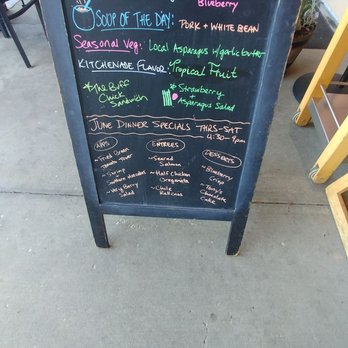 Blueberry
SOUP OF THE DAY: PORK + WHITE BEAN
Seasonal Veg: Local Asparagus w/garlic butter
KITCHENADE FLAVOR: Tropical Fruit
* The Buff
Chick
Sandwich
* Strawberry +
Asparagus Salad
JUNE DINNER SPECIALS THRS-SAT
4:30-9pm
APPS
~Fried Green
Tomato Tower
~Shrimp
~Very Berry
Salad
ENTREES
~Seared
Salmon
~Half Chicken
Oreganata
~Chile
Rellenos
DESSERTS
~Blueberry
Crisp
~Tony's
Chocolate
Cake